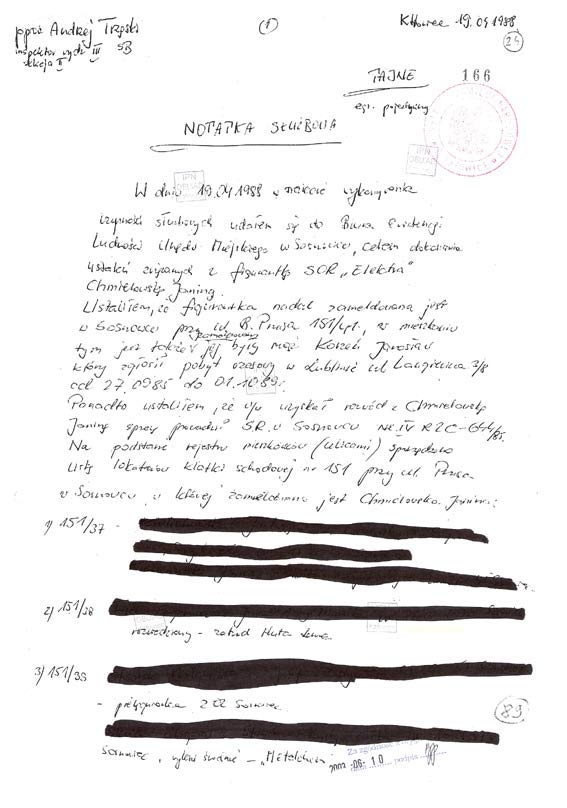 ppor Andrzej
inspektor wydz III SB
sekcja II
①
K-towice 19.04.1988
24
TAJNE 166
egz. pojedynczy
NOTATKA SŁUŻBOWA
IPN
IPN
W dniu 19.04.1988 w trakcie wykonywania
czynności służbowych udałem się do Biura Ewidencji
Ludności Urzędu Miejskiego w Sosnowcu, celem dokonania
ustaleń związanych z figurantką SOR „Elektra"
Chmielowską Janiną.
Ustaliłem, że figurantka nadal zameldowana jest
w Sosnowcu przy ul. B. Prusa 151/ , w mieszkaniu
zameldowany
tym jest także jej były mąż Korzeń Jarosław
który zgłosił pobyt czasowy w Lublinie ul 3/8
od 27.0985 do 01.1089r.
Ponadto ustaliłem, że w/w uzyskał rozwód z Chmielowską
Janiną sprawę prowadził SR w Sosnowcu
Na podstawie rejestru mieszkańców (ulicami) sporządzono
listę lokatorów klatki schodowej nr 151 przy ul. Prusa
w Sosnowcu w której zameldowana jest Chmielowska Janina:
1) 151/37 -
2) 151/38
rozwiedziony - zatrud Huta
3) 151/39
- pielęgniarka ZOZ Sosnowiec
89
Sosnowiec, wykszt średnie -
Za zgodność
2002 -06- 10 podpis